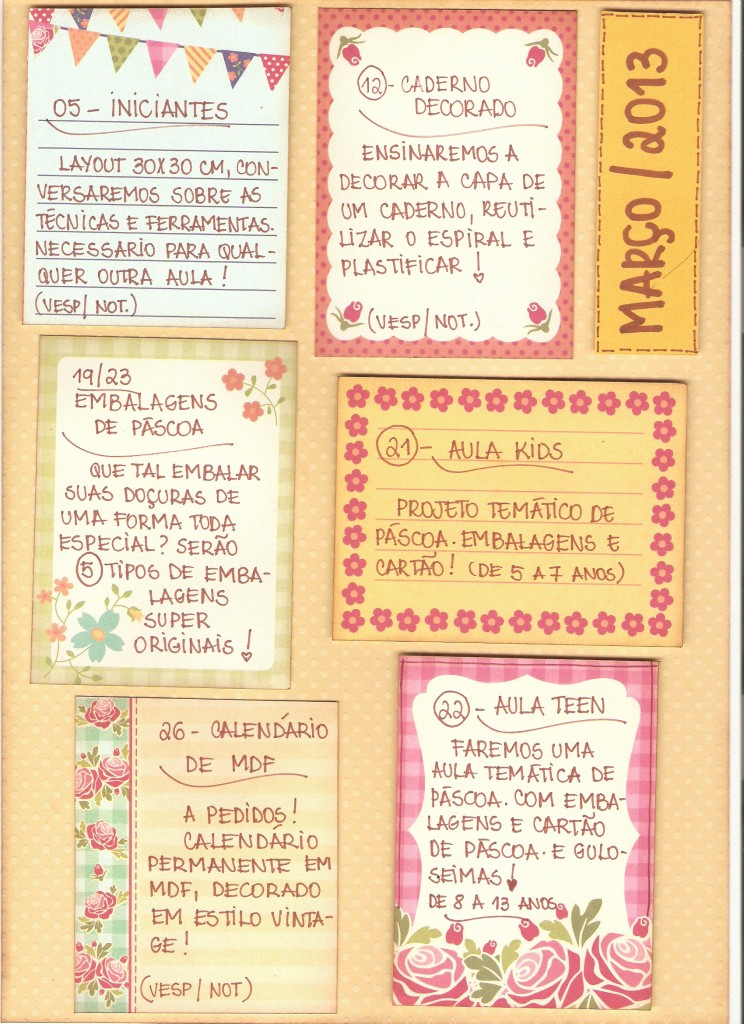 MARÇO / 2013
05 - INICIANTES
LAYOUT 30X30 CM, CON-
VERSAREMOS SOBRE AS
TÉCNICAS E FERRAMENTAS.
NECESSARIO PARA QUAL-
QUER OUTRA AULA !
(VESP/ NOT.)
12 - CADERNO
DECORADO
ENSINAREMOS A
DECORAR A CAPA DE
UM CADERNO, REUTI-
LIZAR O ESPIRAL E
PLASTIFICAR !
(VESP/NOT.)
19/23
EMBALAGENS
DE PÁSCOA
QUE TAL EMBALAR
SUAS DOÇURAS DE
UMA FORMA TODA
ESPECIAL? SERÃO
5 TIPOS DE EMBA-
LAGENS
SUPER
ORIGINAIS !
21 - AULA KIDS
PROJETO TEMÁTICO DE
PÁSCOA. EMBALAGENS E
CARTÃO! (DE 5 A 7 ANOS)
26 - CALENDÁRIO
DE MDF
A PEDIDOS!
CALENDÁRIO
PERMANENTE EM
MDF, DECORADO
EM ESTILO VINTA-
GE!
(VESP/NOT)
22 - AULA TEEN
FAREMOS UMA
AULA TEMÁTICA DE
PÁSCOA. COM EMBA-
LAGENS E CARTÃO
DE PÁSCOA. E GULO-
SEIMAS!
DE 8 A 13 ANOS